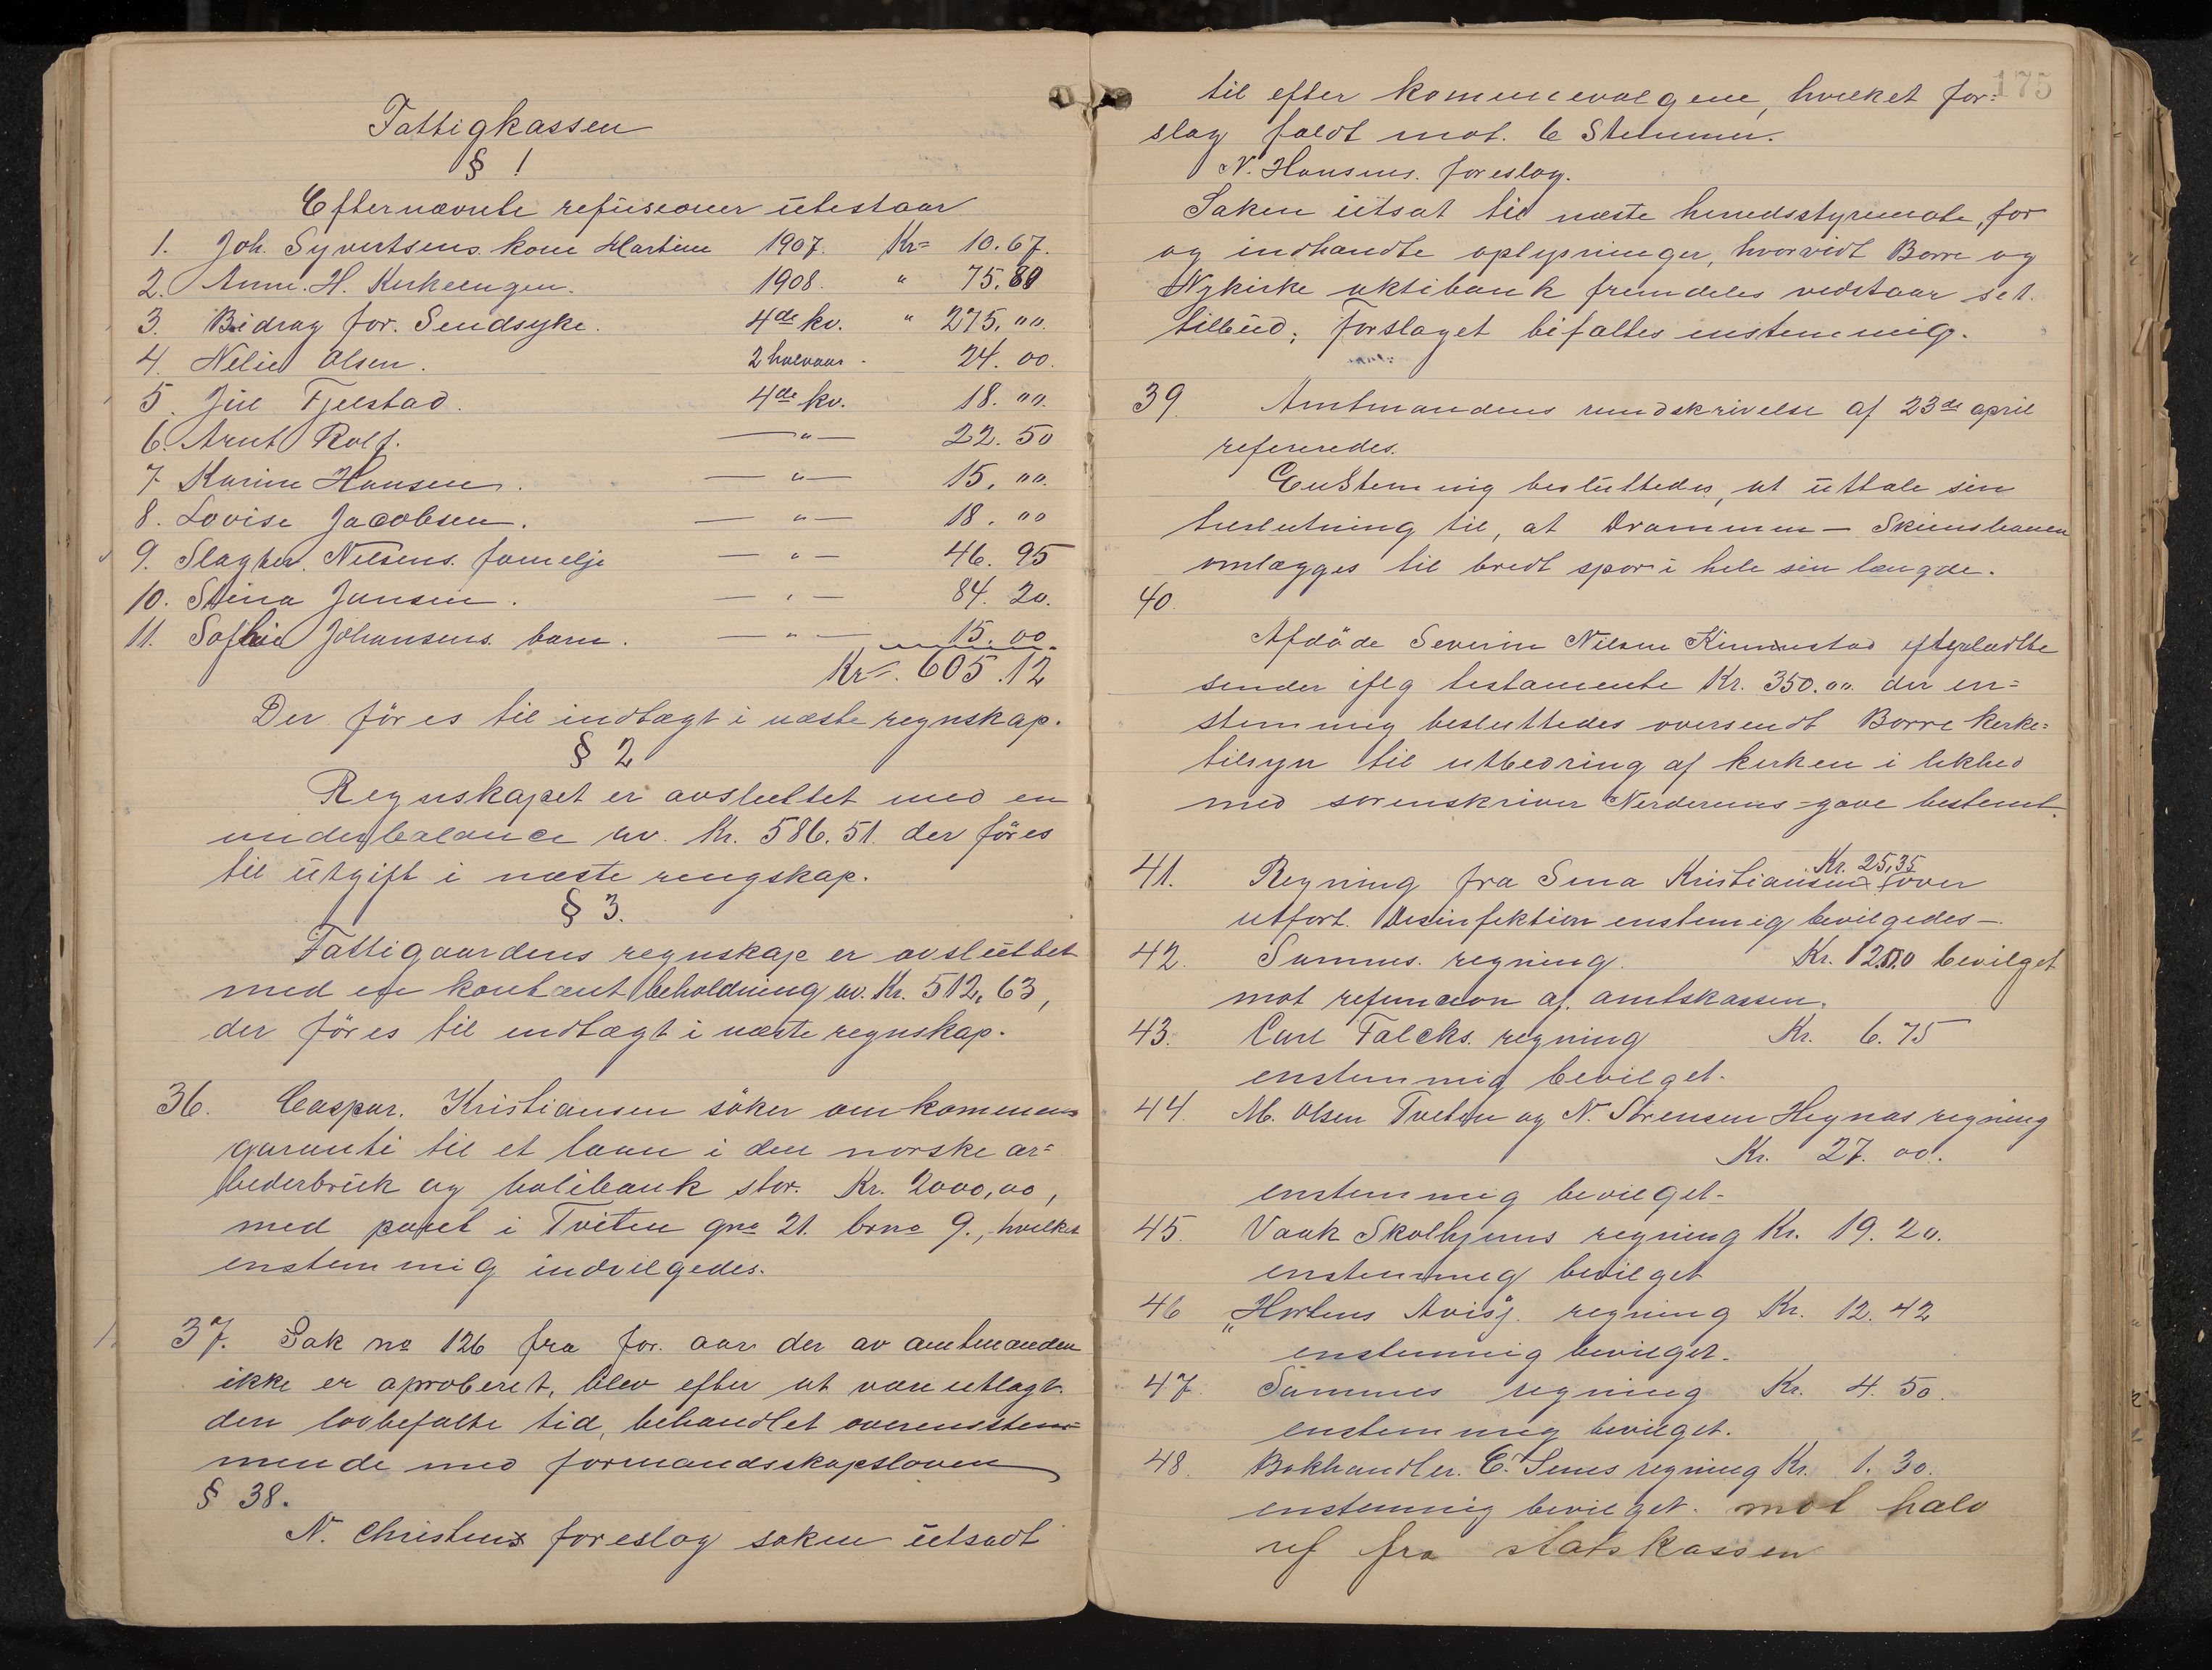 Fattigkassen
§ 1
Efternævnte refusioner utestaar
1. Joh. Syvertsens kone Martine 1907. Kr= 10.67.
2. Anne. H. Kirkeengen. 1908. " 75.80
3. Bidrag for. Sendsyke. 4de kv. " 275,00.
4. Nelie Olsen. 2 halvaar. 24.00.
5. Jul Fjelstad. 4de kv. 18.00.
6. Arnt Rolf. —"— 22.50
7. Karine Hansen. —"— 15,00.
8. Lovise Jacobsen. —"— 18.00
9. Slagter. Nilsens. familje —"— 46.95
10. Stina Jansen. —"— 84.20.
11. Sofhie Johansens. barn. —"— 15.00
Kr=. 605.12
Der föres til indtægt i næste regnskap.
§ 2
Regnskapet er avsluttet med en
underbalance av. Kr. 586.51. der föres
til utgift i næste rengskap.
§ 3.
Fattigaardens regnskap er avsluttet
med en kontant beholdning av. Kr. 512,63,
der föres til indtægt i næste regnskap.
36. Caspar. Kristiansen söker om kommunens
garanti til et laan i den norske ar=
beiderbruk og bolibank stor. Kr. 2000,00,
med pant i Tviten gno 21. brno 9., hvilket
enstemmig indvilgedes.
37. Sak no 126 fra for. aar der av amtmanden
ikke er aproberet, blev efter at være utlagt.
den lovbefalte tid, behandlet overensstem=
mende med formandsskapsloven
§ 38.
N. Christens foreslog saken utsadt
175
til efter kommunevalgene, hvilket for=
slag faldt mot. 6 Stemmer.
N. Hansens. foreslog.
Saken utsat til næste herredsstyremøte, for
og indhandte oplysninger, hvorvidt Borre og
Nykirke aktibank fremdeles vedstaar set.
tilbud; forslaget bifaltes enstemmig.
39. Amtmandens rundskrivelse af 23de april
refereredes.
Enstemmig besluttedes, at uttale sin
beslutning til, at Drammen — Skiensbanen
omlægges til bredt spor i hele sin længde.
40.
Afdöde Severin Nilsen Kinnestad efterladte
sender iflg testamente Kr. 350.00. der en=
stemmig besluttedes oversendt Borre kirke=
tilsyn til utbedring af kirken i likhed
med sorenskriver Nerderuns-gave bestemt.
41. Regning fra Sina Kristiansen Kr. 25,35 for
utfört. Desinfektion enstemig bevilgedes—
42. Sammes. regning. Kr. 12.00 bevilget
mot refunsion af. amtskassen.
43. Carl Falcks. regning Kr. 6.75
enstemmig bevilget.
44. M. Olsen Tveiten og N. Sörensen Hegnas regning
Kr. 27.00.
enstemmig bevilget-
45. Vaak Skolhjems regning Kr. 19.20.
enstemmeg bevilget
46 „Hortens Avisj. regning Kr. 12.42
enstemmig bevilget.
47. Sammes regning Kr. 4.50.
enstemmig bevilget.
48. Bokhandler. C. Sens regning Kr. 1.30.
enstemmig bevilget. mot halv
ref fra statskassen